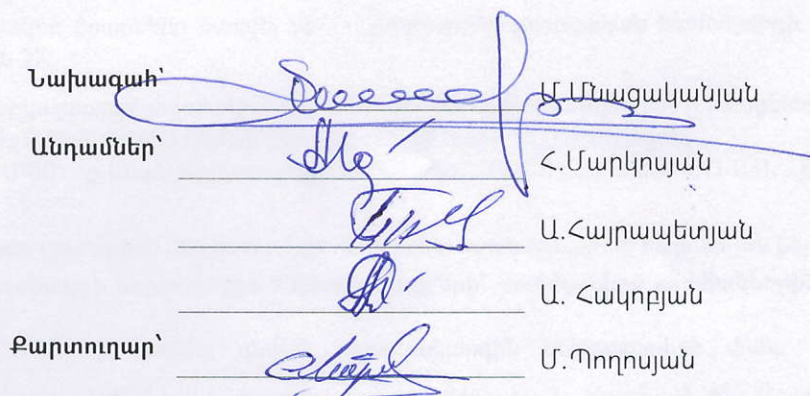 Նախագահ՝ Մ.Մնացականյան
Անդամներ՝ Հ.Մարկոսյան
Ա.Հայրապետյան
Ա. Հակոբյան
Քարտուղար՝ Մ.Պողոսյան